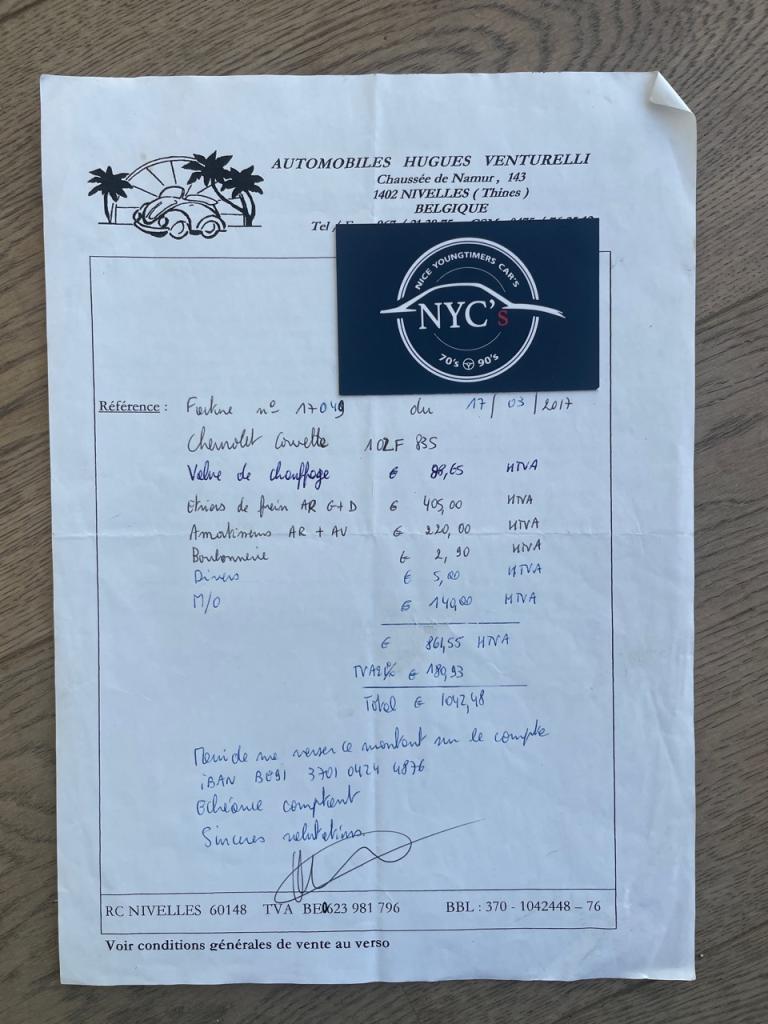 AUTOMOBILES HUGUES VENTURELLI
Chaussée de Namur, 143
1402 NIVELLES ( Thines )
BELGIQUE
Tel /
NICE YOUNGTIMERS CAR'S
NYC's
70's 90's
Référence : Facture n° 17049 du 17/03/2017
Chevrolet Corvette 102F 835
Valve de chauffage € 88,65 HTVA
Etriers de frein AR G+D € 405,00 HTVA
Amortisseurs AR + AV € 220,00 HTVA
Boulonnerie € 2,90 HTVA
Divers € 5,00 HTVA
M/O € 140,00 HTVA
€ 861,55 HTVA
TVA 21% € 180,93
Total € 1042,48
Merci de me verser ce montant sur le compte
iBAN BE91 3701 0424 4876
Echéance comptant
Sincères salutations
RC NIVELLES 60148 TVA BE0623 981 796 BBL : 370 - 1042448 – 76
Voir conditions générales de vente au verso